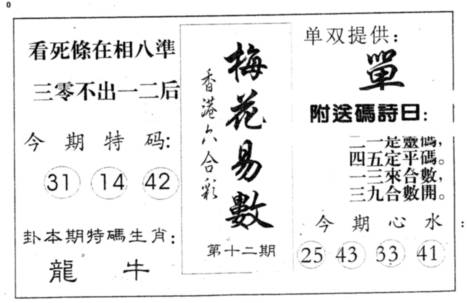 看死條在相八準
三零不出一二后
今期特码:
31 14 42
卦本期特碼生肖:
龍 牛
梅花易數
香港六合彩
第十二期
单双提供:
單
附送碼詩日:
二一是靈碼,
四五定平碼。
一三來合數,
三九合數開。
今期心水:
25 43 33 41